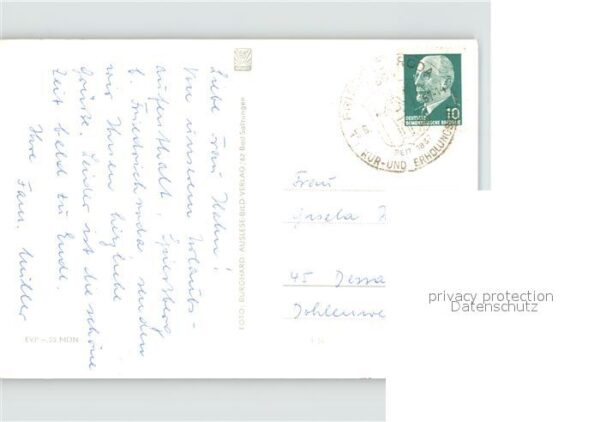 Liebe Frau Hahn!
Von unserem Urlaubs-
aufenthalt, Spießberg
b. Friedrichroda senden
wir Ihnen herzliche
Grüße. Leider ist die schöne
Zeit bald zu Ende.
Ihre Fam. Müller
EVP –,20 MDN
FOTO: BURGHARD AUSLESE-BILD-VERLAG / 82 Bad Salzungen
KUR- UND ERHOLUNGS
10
DEUTSCHE
DEMOKRATISCHE REPUBLIK
Frau
Gisela
45 Dessa
privacy protection
Datenschutz